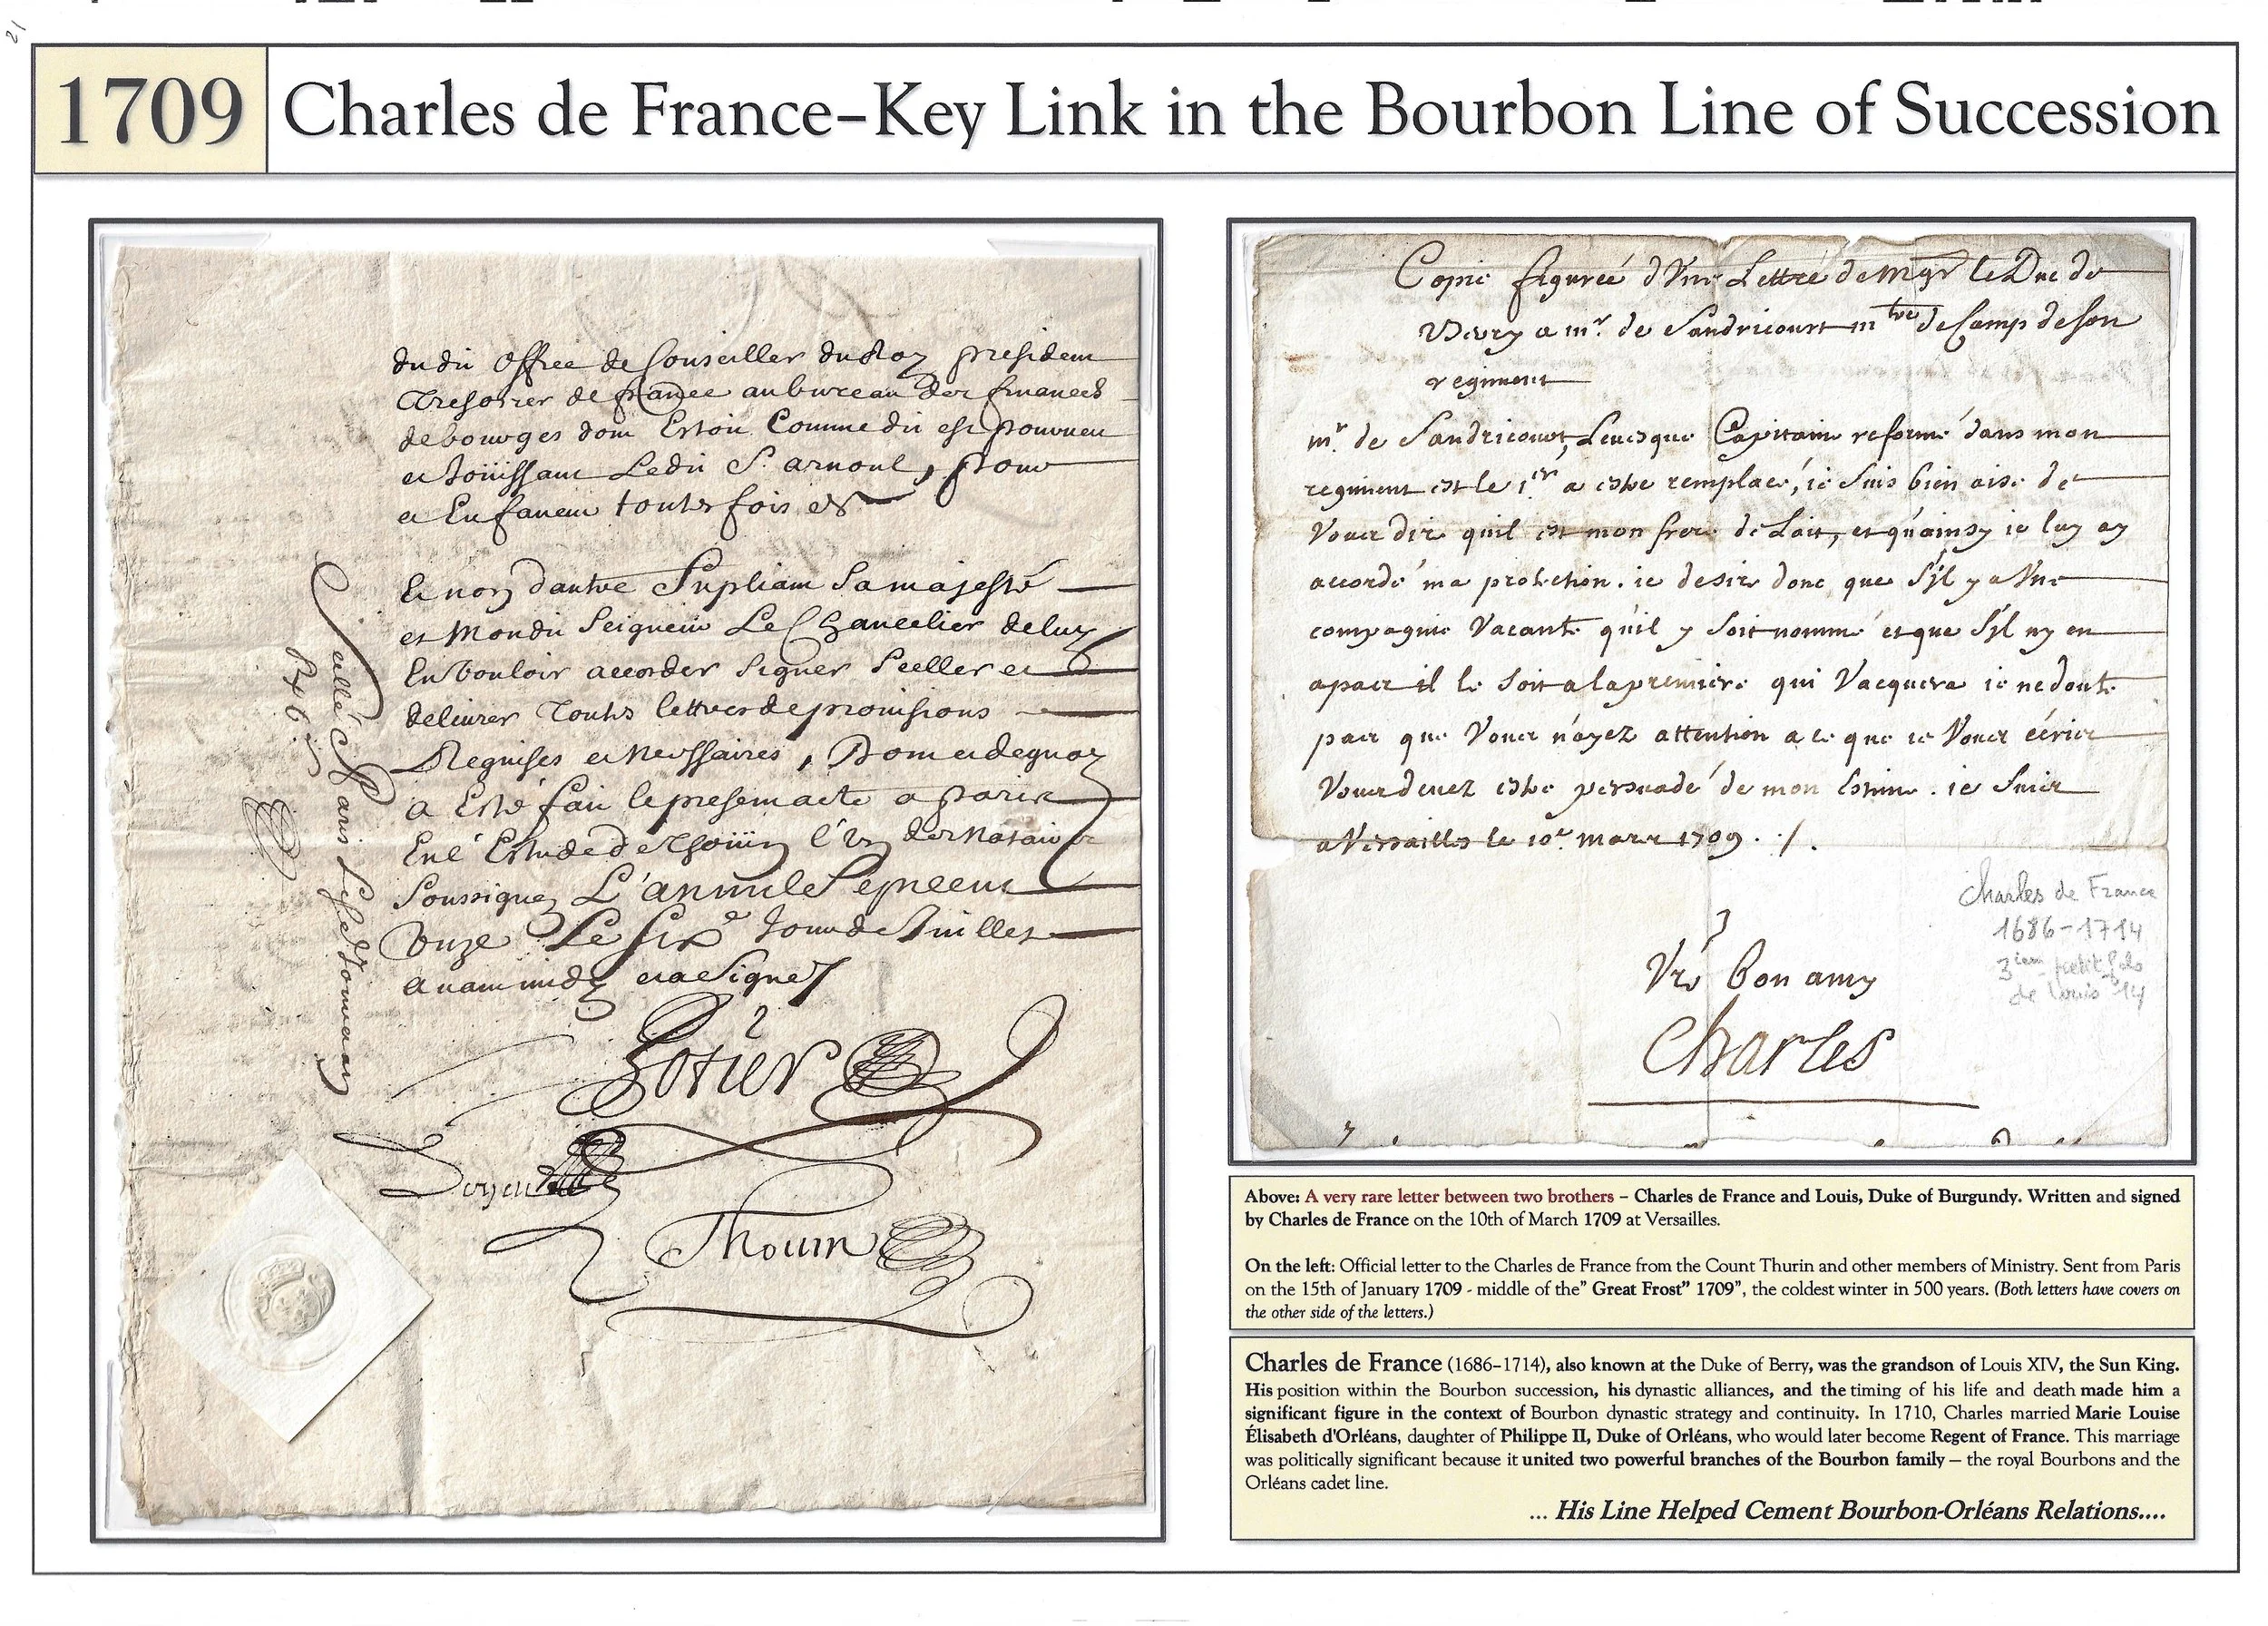 21
1709
Charles de France–Key Link in the Bourbon Line of Succession
dudit office de Conseiller du Roy president
Tresorier de france au bureau des finances
de bourges dont Estoit Comme dit est pourveu
et Joüissant Ledit S. arnoul, pour
et En faveur toutes fois &
Et non dautre Supliant Sa majesté
et Mondit Seigneur Le Chancelier de luy
En vouloir accorder Signer Seeller et
delivrer Toutes lettres de provisions
Requises et Necessaires, Dont et de quoy
a Esté fait le present acte a paris
En l'Estude de Thoüin l'un des Notaires
Soussignez L'an mil Sept cent
Onze Le Six.e Jour de Juillet
avant midy et a Signé
Scellé
Doyen
Thouin
Copie figureé d'Une Lettre de Mgr le Duc de
Berry a mr. de Sandricourt mtre de Camp de Son
regiment
mr. de Sandricourt, Levesque Capitaine reformé dans mon
regiment est le 1er a estre remplacé, ie suis bien aise de
Vous dire quil est mon frere de Lait, et qu'ainsy ie luy ay
accordé ma protection. ie desire donc que S'il y a Une
compagnie Vacante qu'il y Soit nommé et que S'il ny en
a pas il le Soit a la premiere qui Vacquera ie ne doute
pas que Vous n'ayez attention a ce que ie Vous écris
Vous devez estre persuadé de mon Estime. ie Suis
a Versailles le 10e. mars 1709. /.
Vre bon amy
Charles
Charles de France
1686-1714
3iem petit fils
de Louis 14
Above: A very rare letter between two brothers – Charles de France and Louis, Duke of Burgundy. Written and signed
by Charles de France on the 10th of March 1709 at Versailles.
On the left: Official letter to the Charles de France from the Count Thurin and other members of Ministry. Sent from Paris
on the 15th of January 1709 - middle of the" Great Frost" 1709", the coldest winter in 500 years. (Both letters have covers on
the other side of the letters.)
Charles de France (1686–1714), also known at the Duke of Berry, was the grandson of Louis XIV, the Sun King.
His position within the Bourbon succession, his dynastic alliances, and the timing of his life and death made him a
significant figure in the context of Bourbon dynastic strategy and continuity. In 1710, Charles married Marie Louise
Élisabeth d'Orléans, daughter of Philippe II, Duke of Orléans, who would later become Regent of France. This marriage
was politically significant because it united two powerful branches of the Bourbon family – the royal Bourbons and the
Orléans cadet line.
... His Line Helped Cement Bourbon-Orléans Relations....